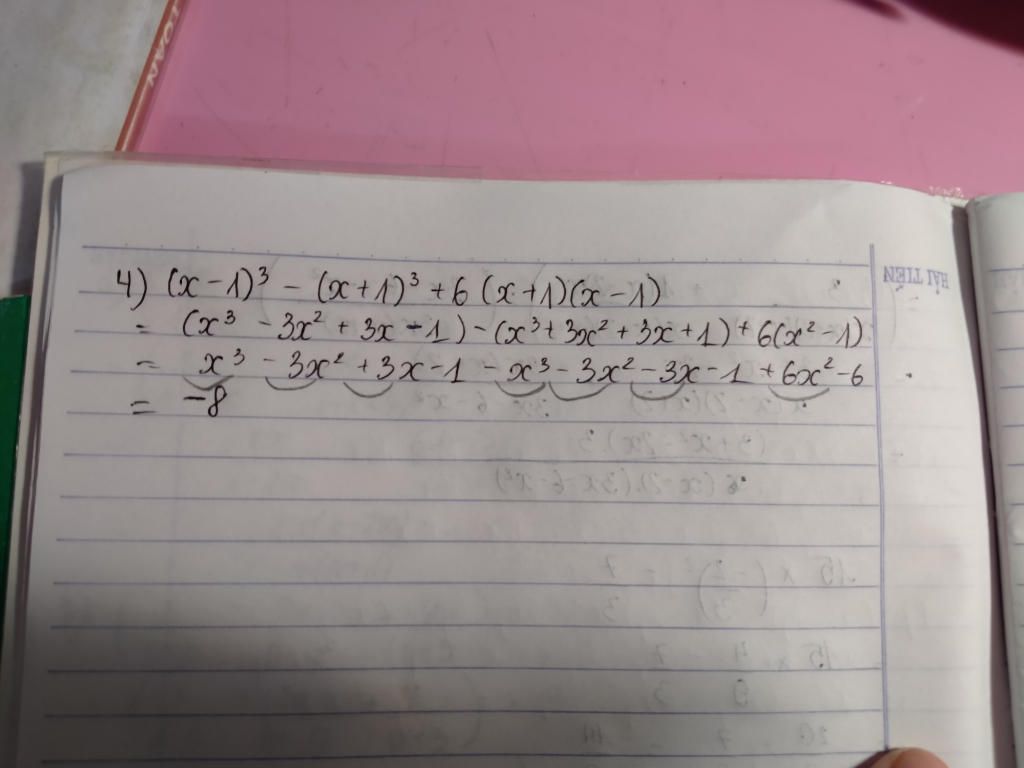 TOAN
4) (x - 1)³ - (x + 1)³ + 6 (x + 1)(x - 1)
= (x³ - 3x² + 3x - 1) - (x³ + 3x² + 3x + 1) + 6(x² - 1)
= x³ - 3x² + 3x - 1 - x³ - 3x² - 3x - 1 + 6x² - 6
= -8
HẢI TIẾN